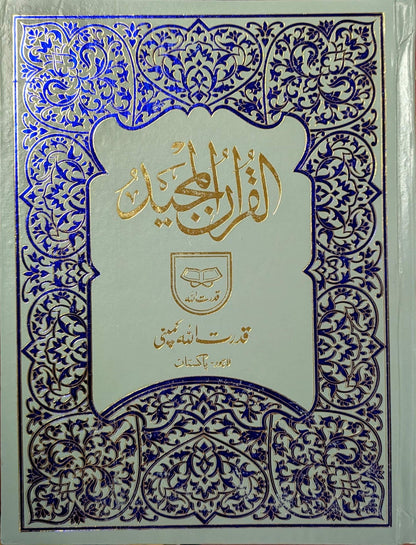 القرآن المجيد
قدرت اللہ
قدرت اللہ کمپنی
لاہور - پاکستان